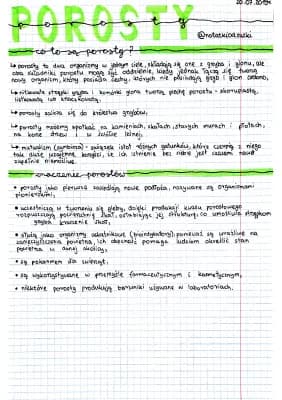 20.07.2019r
POROSTY
porosty
@notatkiodzuzki
co to są porosty?
↳ porosty to dwa organizmy w jednym ciele, składają się one z grzyba i glonu, ale
oba składniki porostu mogą żyć oddzielnie, kiedy jednak łączą się tworzą
nowy organizm, który posiada cechy, których nie posiadają grzyb i glon osobno,
↳ nitkowate strzępki grzyba i komórki glonu tworzą plechę porostu - skorupiastą,
listkowatą lub krzaczkowatą,
↳ porosty zalicza się do królestwa grzybów,
↳ porosty możemy spotkać na kamieniach, skałach, starych murach i płotach,
na korze drzew i w ściółce leśnej,
↳ mutualizm (symbioza) - związek istot różnych gatunków, które czerpią z niego
tak duże wzajemne korzyści, że ich istnienie bez siebie jest czasem nawet
zupełnie niemożliwe.
znaczenie porostów
• porosty jako pierwsze zasiedlają nowe podłoża, nazywane są organizmami
pionierskimi,
• uczestniczą w tworzeniu się gleby, dzięki produkcji kwasu porostowego
rozpuszczają powierzchnię skał, osłabiając jej strukturę, co umożliwia strzępkom
grzyba kruszenie skał,
• służą jako organizmy wskaźnikowe (bioindykatory), ponieważ są wrażliwe na
zanieczyszczenia powietrza, ich obecność pomaga ludziom określić stan
powietrza w danej okolicy,
• są pokarmem dla zwierząt,
• są wykorzystywane w przemyśle farmaceutycznym i kosmetycznym,
• niektóre porosty produkują barwniki używane w laboratoriach.